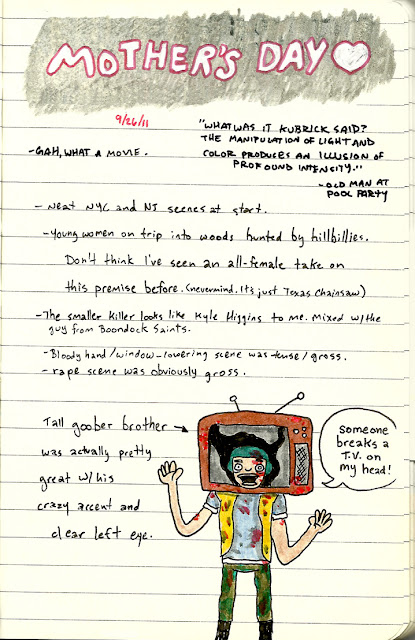 MOTHER'S DAY
9/26/11
-GAH, WHAT A MOVIE.
"WHAT WAS IT KUBRICK SAID?
THE MANIPULATION OF LIGHT AND
COLOR PRODUCES AN ILLUSION OF
PROFOUND INTENSITY."
-OLD MAN AT
POOL PARTY
- Neat NYC and NJ scenes at start.
- Young women on trip into woods hunted by hillbillies.
Don't think I've seen an all-female take on
this premise before. (nevermind. It's just Texas Chainsaw)
-The smaller killer looks like Kyle Higgins to me. Mixed w/the
guy from Boondock Saints.
-Bloody hand/window-lowering scene was tense/gross.
- rape scene was obviously gross.
Tall goober brother →
was actually pretty
great w/ his
crazy accent and
clear left eye.
Someone
breaks a
T.V. on
my head!